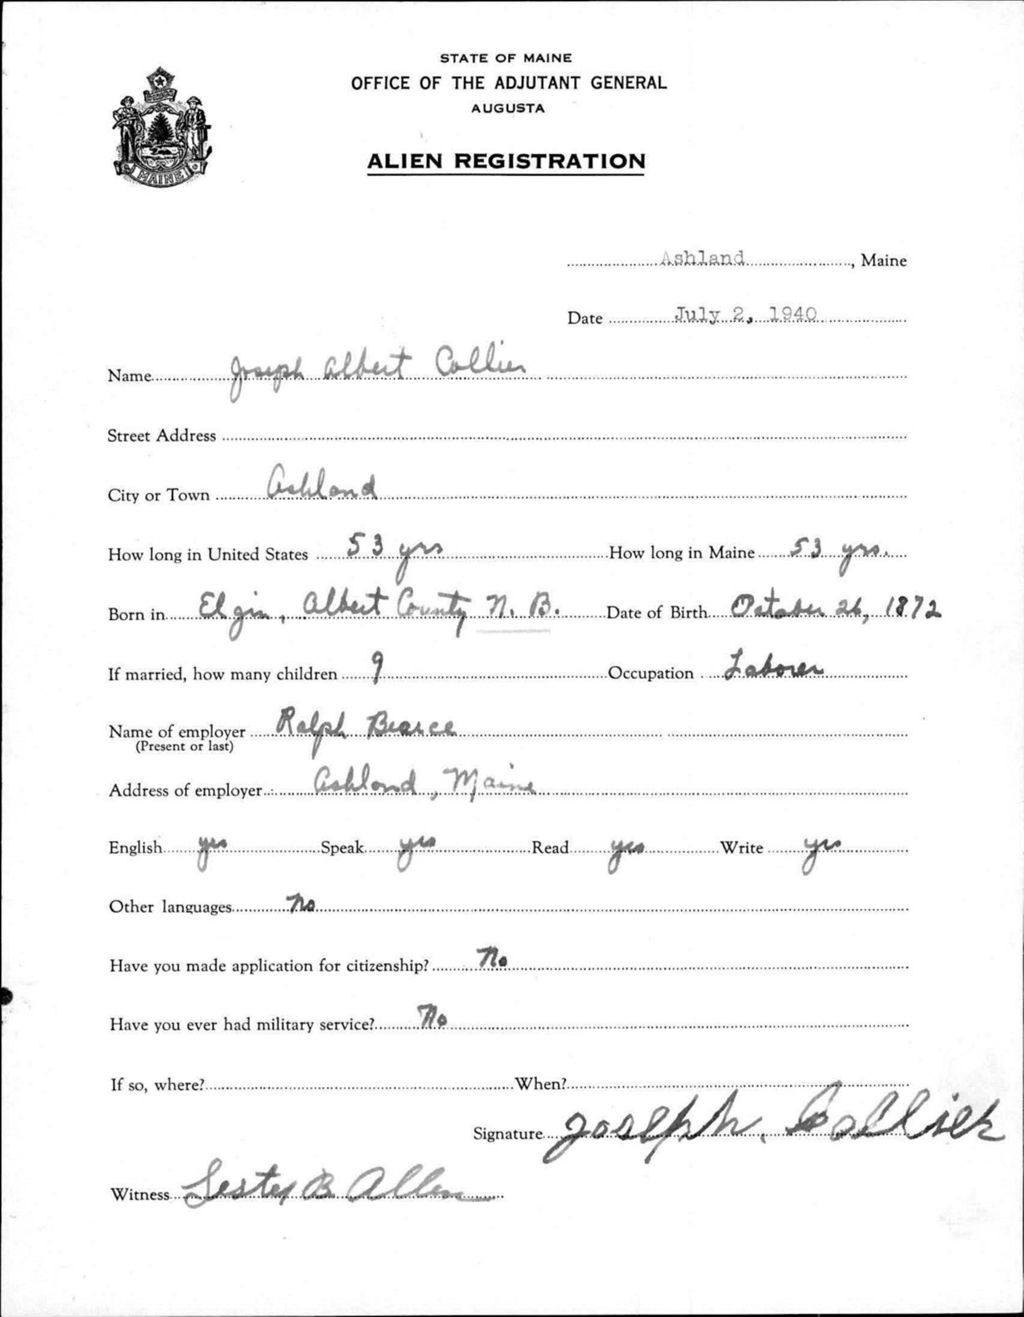 STATE OF MAINE
OFFICE OF THE ADJUTANT GENERAL
AUGUSTA
ALIEN REGISTRATION
MAINE
Ashland, Maine
Date July 2, 1940
Name Joseph Albert Collier
Street Address
City or Town Ashland
How long in United States 53 yrs How long in Maine 53 yrs.
Born in Elgin, Albert County N. B. Date of Birth October 26, 1872
If married, how many children 9 Occupation Laborer
Name of employer Ralph Bearce
(Present or last)
Address of employer Ashland, Maine
English yes Speak yes Read yes Write yes
Other languages No
Have you made application for citizenship? No
Have you ever had military service? No
If so, where? When?
Signature Joseph. Collier
Witness Lester B Allen